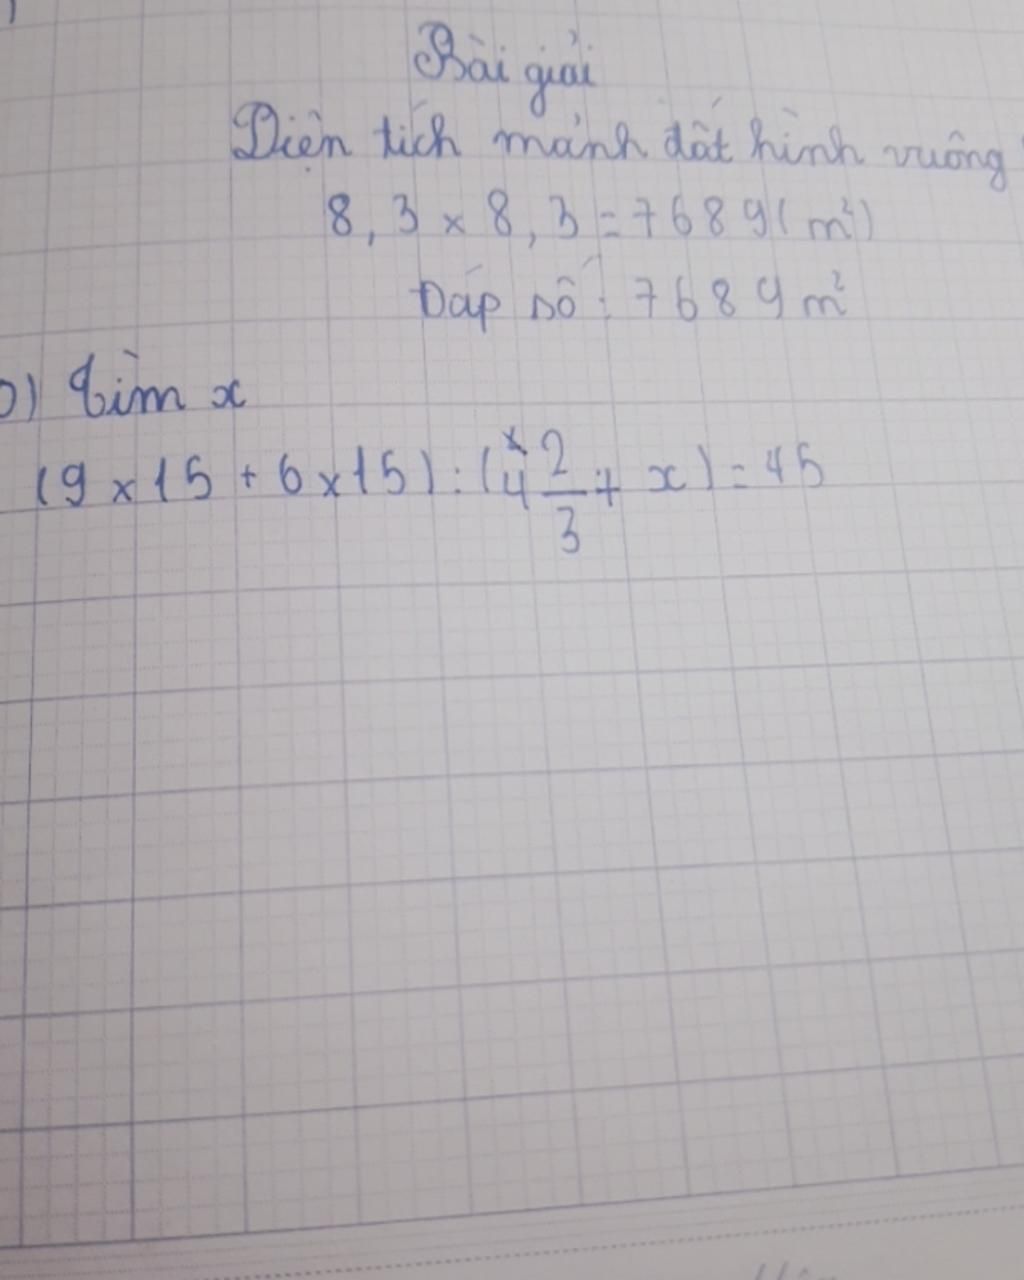 Bài giải
Diện tích mảnh đất hình vuông
8,3 x 8,3 = 7689 (m²)
Đáp số: 7689 m²
b) Tìm x
(9 x 15 + 6 x 15) : (4 2/3 + x) = 45